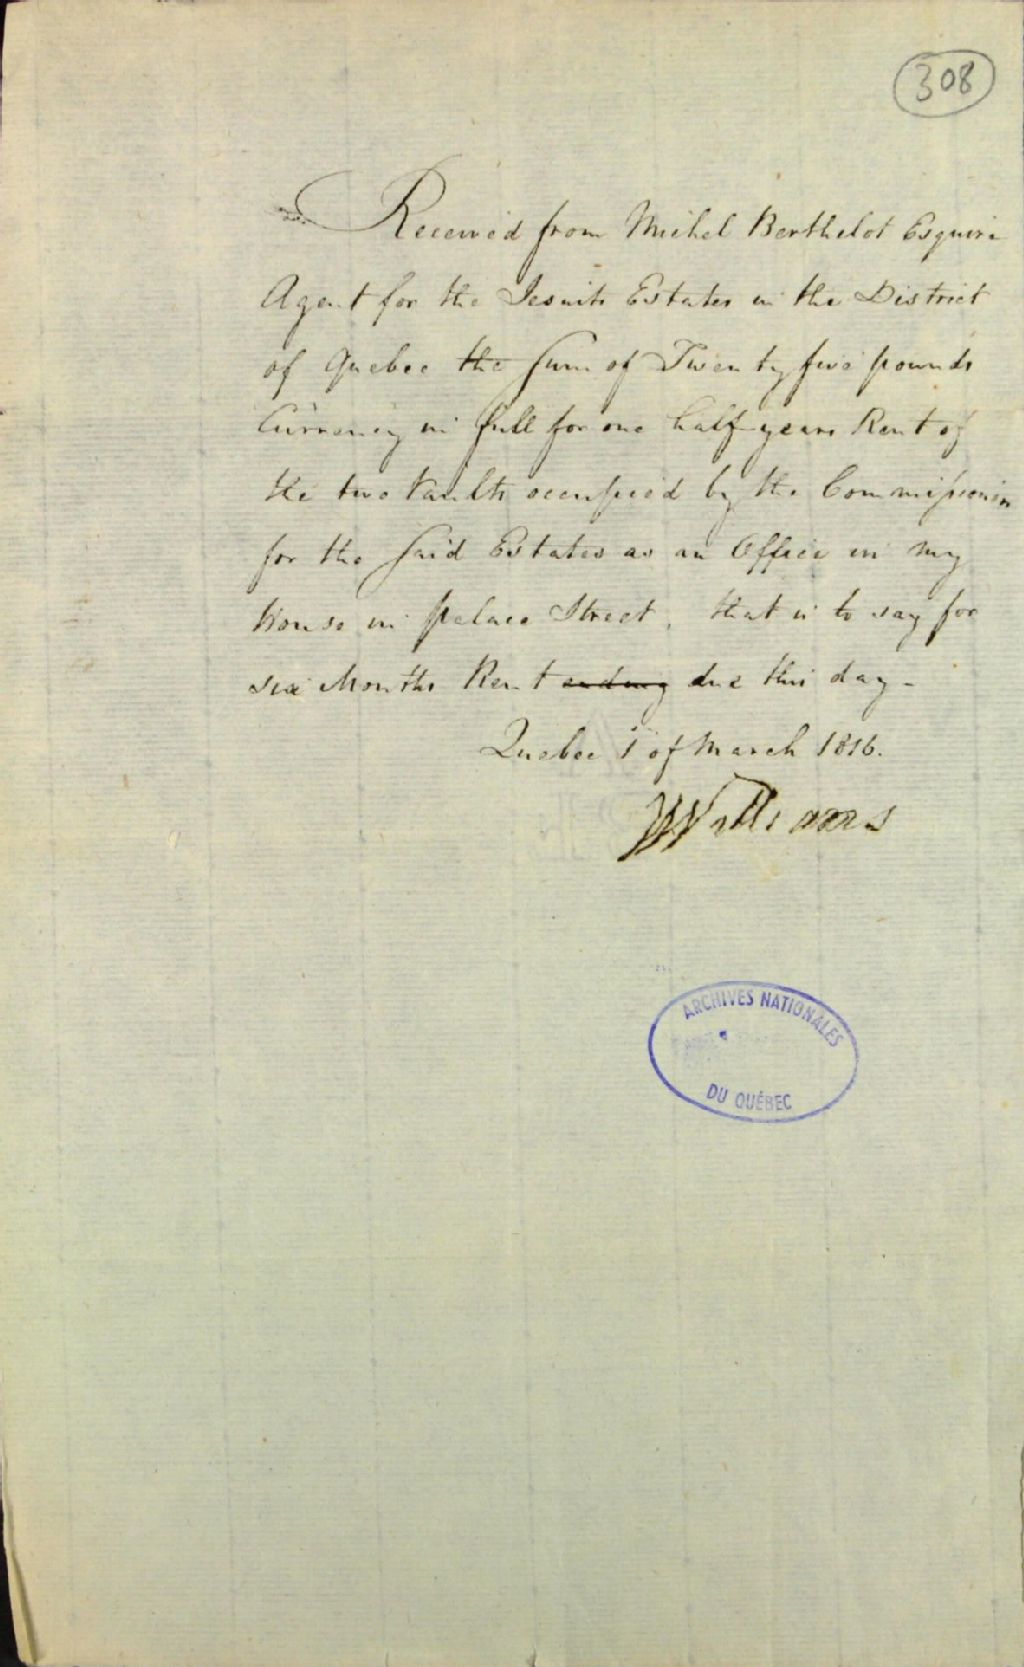 308
Received from Michel Berthelot Esquire
Agent for the Jesuits Estates in the District
of Quebec the Sum of Twenty five pounds
Currency in full for one half years Rent of
the two Vaults occupied by the Commissioner
for the Said Estates as an Office in my
House in palace Street, that is to say for
six Months Rent ending due this day -
Quebec 1 of March 1816.
W Williams
ARCHIVES NATIONALES
DU QUÉBEC